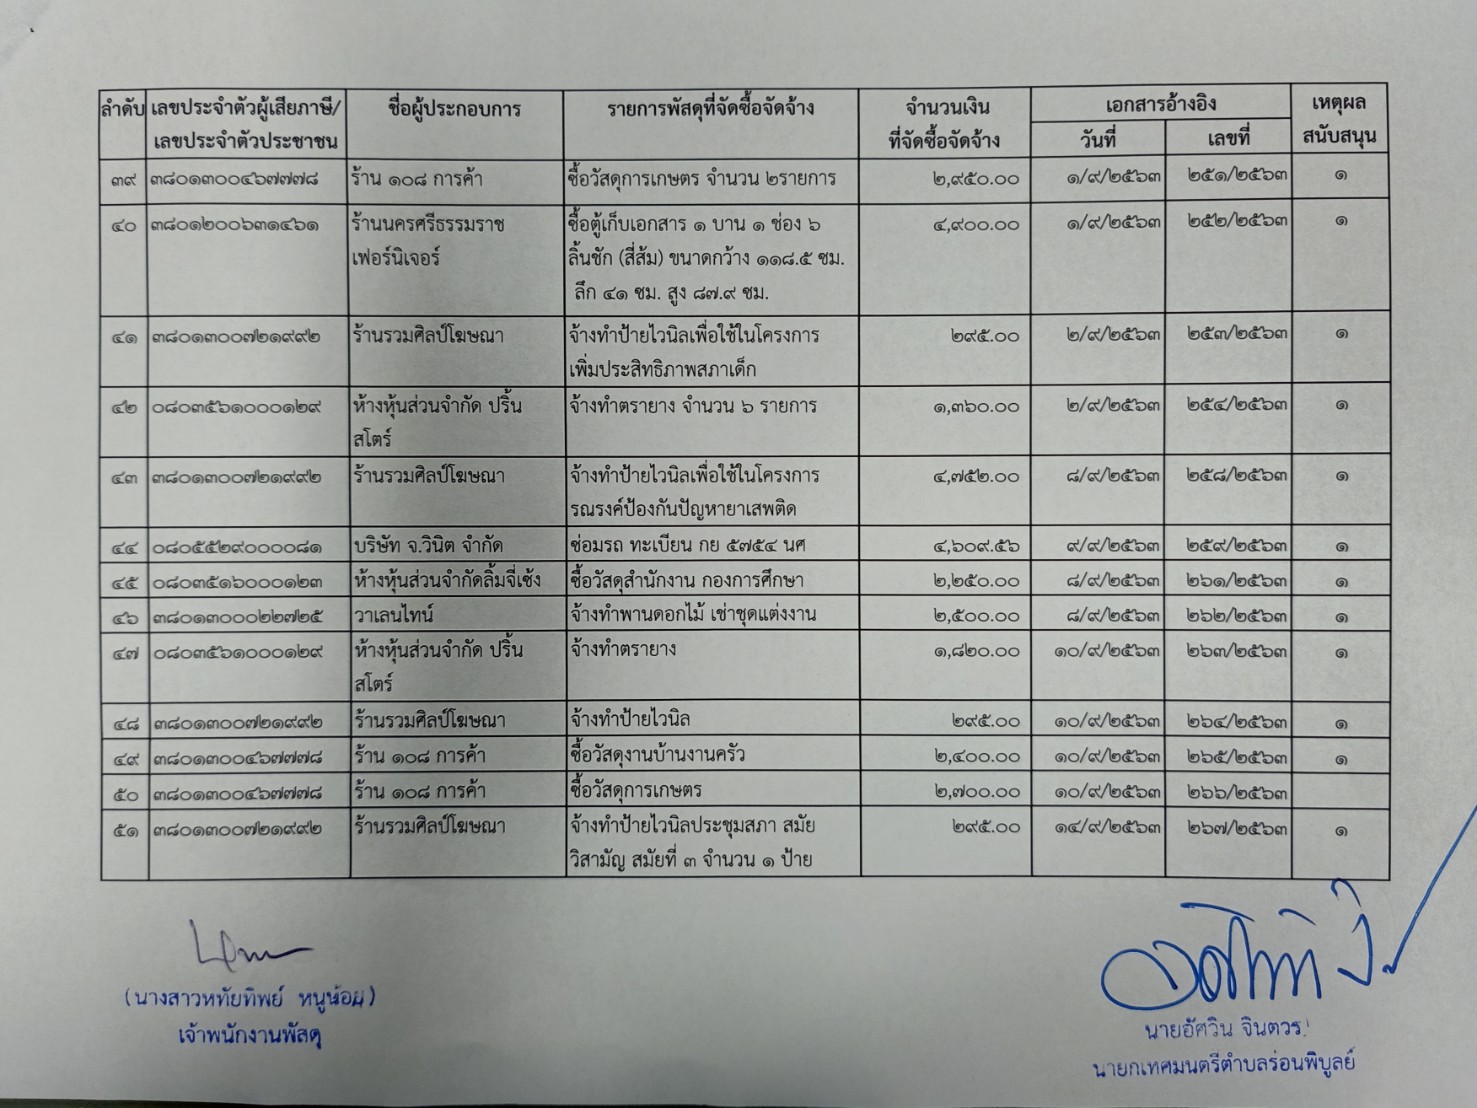 ลำดับ เลขประจำตัวผู้เสียภาษี/ ชื่อผู้ประกอบการ รายการพัสดุที่จัดซื้อจัดจ้าง จำนวนเงิน เอกสารอ้างอิง เหตุผล
เลขประจำตัวประชาชน ที่จัดซื้อจัดจ้าง วันที่ เลขที่ สนับสนุน
๓๙ ๓๘๐๑๓๐๐๔๖๗๗๗๘ ร้าน ๑๐๘ การค้า ซื้อวัสดุการเกษตร จำนวน ๒รายการ ๒,๙๕๐.๐๐ ๑/๙/๒๕๖๓ ๒๕๑/๒๕๖๓ ๑
๔๐ ๓๘๐๑๒๐๐๖๓๑๔๖๑ ร้านนครศรีธรรมราช ซื้อตู้เก็บเอกสาร ๑ บาน ๑ ช่อง ๖ ๔,๙๐๐.๐๐ ๑/๙/๒๕๖๓ ๒๕๒/๒๕๖๓ ๑
เฟอร์นิเจอร์ ลิ้นชัก (สี่ส้ม) ขนาดกว้าง ๑๑๘.๕ ซม.
ลึก ๔๑ ซม. สูง ๘๗.๙ ซม.
๔๑ ๓๘๐๑๓๐๐๗๒๑๙๙๒ ร้านรวมศิลป์โฆษณา จ้างทำป้ายไวนิลเพื่อใช้ในโครงการ ๒๙๕.๐๐ ๒/๙/๒๕๖๓ ๒๕๓/๒๕๖๓ ๑
เพิ่มประสิทธิภาพสภาเด็ก
๔๒ ๐๘๐๓๕๖๑๐๐๐๑๒๙ ห้างหุ้นส่วนจำกัด ปริ้น จ้างทำตรายาง จำนวน ๖ รายการ ๑,๓๖๐.๐๐ ๒/๙/๒๕๖๓ ๒๕๔/๒๕๖๓ ๑
สโตร์
๔๓ ๓๘๐๑๓๐๐๗๒๑๙๙๒ ร้านรวมศิลป์โฆษณา จ้างทำป้ายไวนิลเพื่อใช้ในโครงการ ๔,๗๕๒.๐๐ ๘/๙/๒๕๖๓ ๒๕๘/๒๕๖๓ ๑
รณรงค์ป้องกันปัญหายาเสพติด
๔๔ ๐๘๐๕๕๒๙๐๐๐๐๘๑ บริษัท จ.วินิต จำกัด ซ่อมรถ ทะเบียน กย ๕๗๕๔ นศ ๔,๖๐๙.๕๖ ๙/๙/๒๕๖๓ ๒๕๙/๒๕๖๓ ๑
๔๕ ๐๘๐๓๕๑๖๐๐๐๑๒๓ ห้างหุ้นส่วนจำกัดลิ้มจี่เซ้ง ซื้อวัสดุสำนักงาน กองการศึกษา ๒,๒๕๐.๐๐ ๘/๙/๒๕๖๓ ๒๖๑/๒๕๖๓ ๑
๔๖ ๓๘๐๑๓๐๐๐๒๒๗๒๕ วาเลนไทน์ จ้างทำพานดอกไม้ เช่าชุดแต่งงาน ๒,๕๐๐.๐๐ ๘/๙/๒๕๖๓ ๒๖๒/๒๕๖๓ ๑
๔๗ ๐๘๐๓๕๖๑๐๐๐๑๒๙ ห้างหุ้นส่วนจำกัด ปริ้น จ้างทำตรายาง ๑,๘๒๐.๐๐ ๑๐/๙/๒๕๖๓ ๒๖๓/๒๕๖๓ ๑
สโตร์
๔๘ ๓๘๐๑๓๐๐๗๒๑๙๙๒ ร้านรวมศิลป์โฆษณา จ้างทำป้ายไวนิล ๒๙๕.๐๐ ๑๐/๙/๒๕๖๓ ๒๖๔/๒๕๖๓ ๑
๔๙ ๓๘๐๑๓๐๐๔๖๗๗๗๘ ร้าน ๑๐๘ การค้า ซื้อวัสดุงานบ้านงานครัว ๒,๔๐๐.๐๐ ๑๐/๙/๒๕๖๓ ๒๖๕/๒๕๖๓ ๑
๕๐ ๓๘๐๑๓๐๐๔๖๗๗๗๘ ร้าน ๑๐๘ การค้า ซื้อวัสดุการเกษตร ๒,๗๐๐.๐๐ ๑๐/๙/๒๕๖๓ ๒๖๖/๒๕๖๓
๕๑ ๓๘๐๑๓๐๐๗๒๑๙๙๒ ร้านรวมศิลป์โฆษณา จ้างทำป้ายไวนิลประชุมสภา สมัย ๒๙๕.๐๐ ๑๔/๙/๒๕๖๓ ๒๖๗/๒๕๖๓ ๑
วิสามัญ สมัยที่ ๓ จำนวน ๑ ป้าย
(นางสาวหทัยทิพย์ หนูน้อย)
เจ้าพนักงานพัสดุ
นายอัศวิน จินตวร
นายกเทศมนตรีตำบลร่อนพิบูลย์